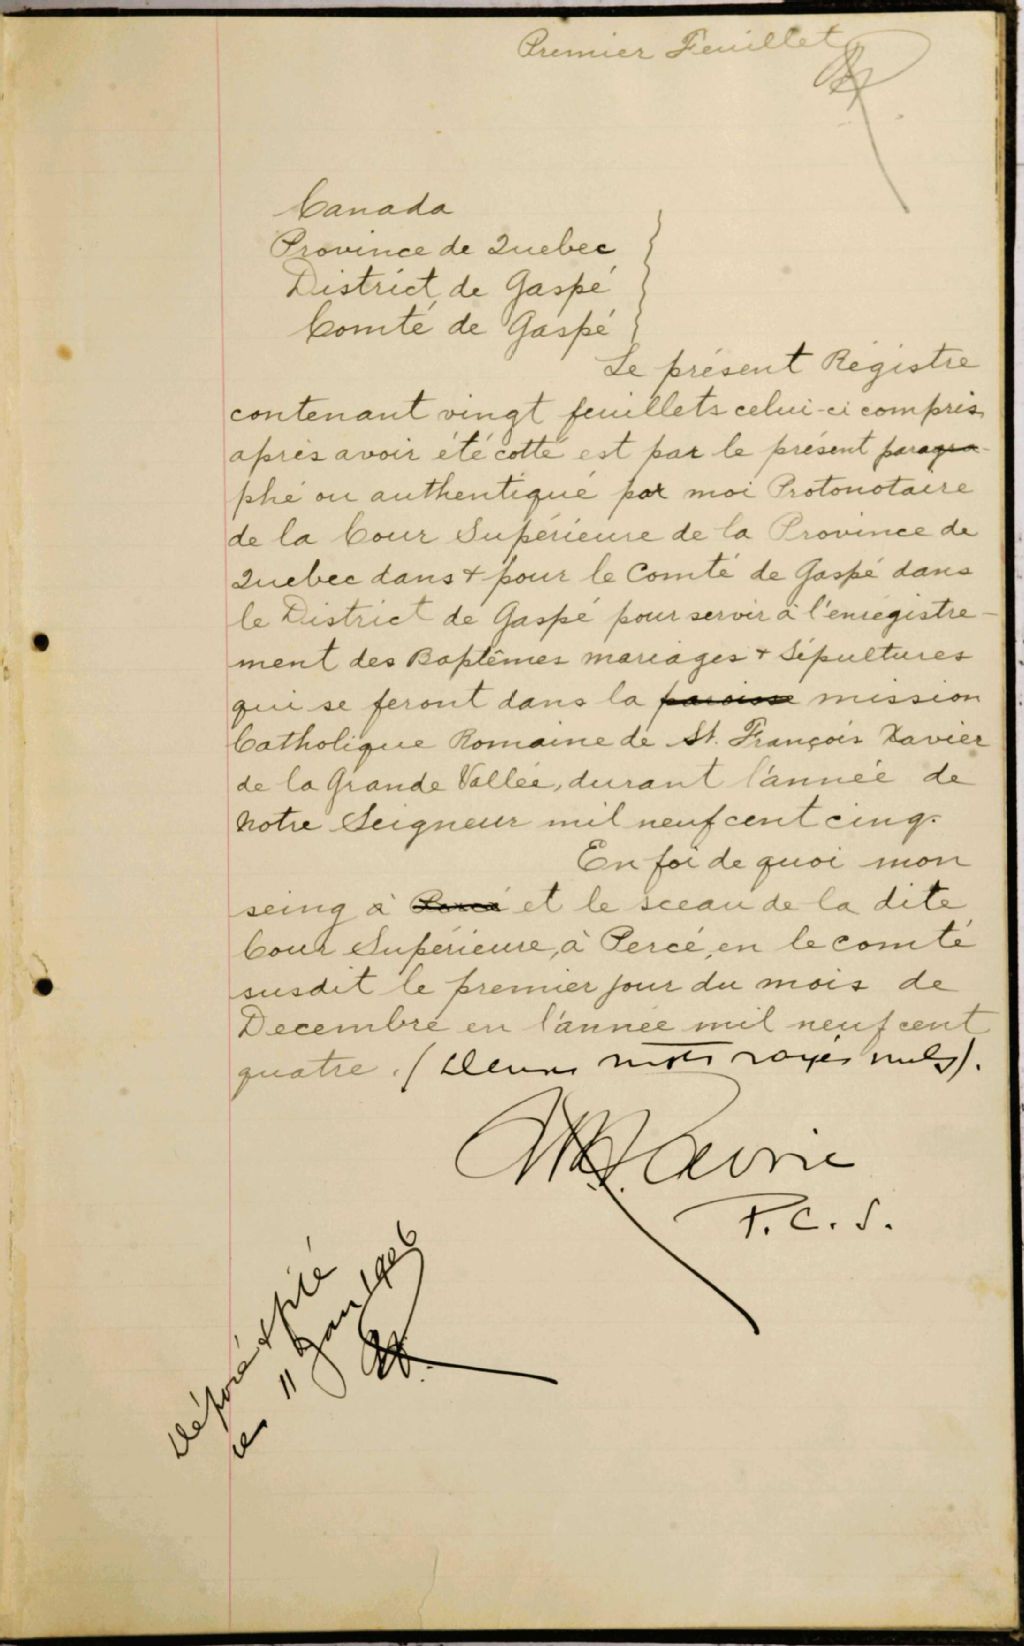 Premier Feuillet
Canada
Province de Quebec
District de Gaspé
Comté de Gaspé
Le présent Régistre
contenant vingt feuillets celui-ci compris
après avoir été cotté est par le présent paragra-
phé ou authentiqué par moi Protonotaire
de la Cour Supérieure de la Province de
Quebec dans + pour le Comté de Gaspé dans
le District de Gaspé pour servir à l'enregistre-
ment des Baptêmes mariages + Sépultures
qui se feront dans la paroisse mission
Catholique Romaine de St. François Xavier
de la Grande Vallée, durant l'année de
Notre Seigneur mil neuf cent cinq.
En foi de quoi mon
seing à Percé et le sceau de la dite
Cour Supérieure, à Percé, en le comté
susdit le premier jour du mois de
Decembre en l'année mil neuf cent
quatre. (Deux mots rayés nuls).
P.C.S.
Déposé +
le 11 Jan 1906